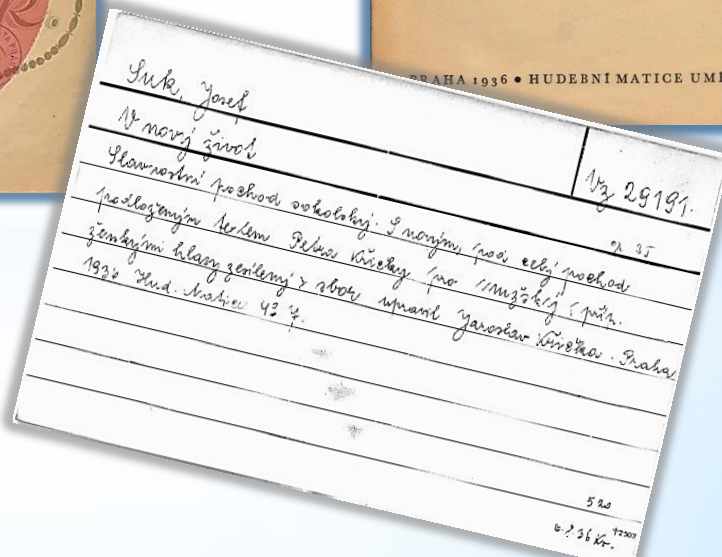 PRAHA 1936 • HUDEBNÍ MATICE UM
Suk, Josef
V nový život
Vz 29191.
op. 35
Slavnostní pochod sokolský. S novým, pod celý pochod
podloženým textem Petra Křičky pro mužský (pří.
ženskými hlasy zesílený) sbor upravil Jaroslav Křička. Praha
1936 Hud. Matice 43 7.
520